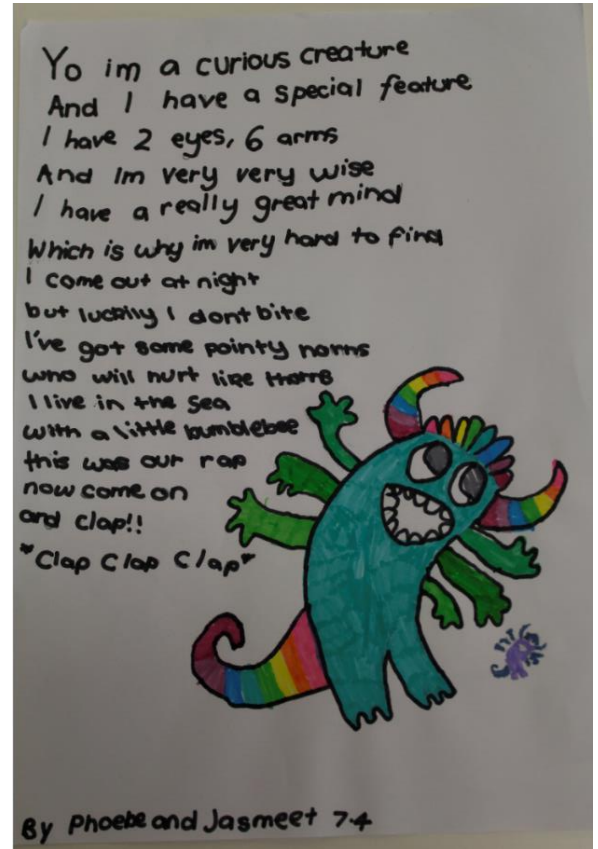 Yo im a curious creature
And I have a special feature
I have 2 eyes, 6 arms
And Im very very wise
I have a really great mind
Which is why im very hard to find
I come out at night
but luckily I dont bite
I've got some pointy horns
who will hurt like thorns
I live in the sea
with a little bumblebee
this was our rap
now come on
and clap!!
"Clap Clap Clap"
By Phoebe and Jasmeet 7.4